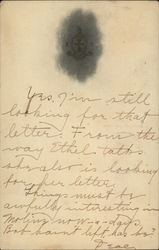 Yes, I'm still
looking for that
letter. From the
way Ethel talks
she also is looking
for her letter.
Things must be
awfully interesting in
now-a-days.
But haint left has